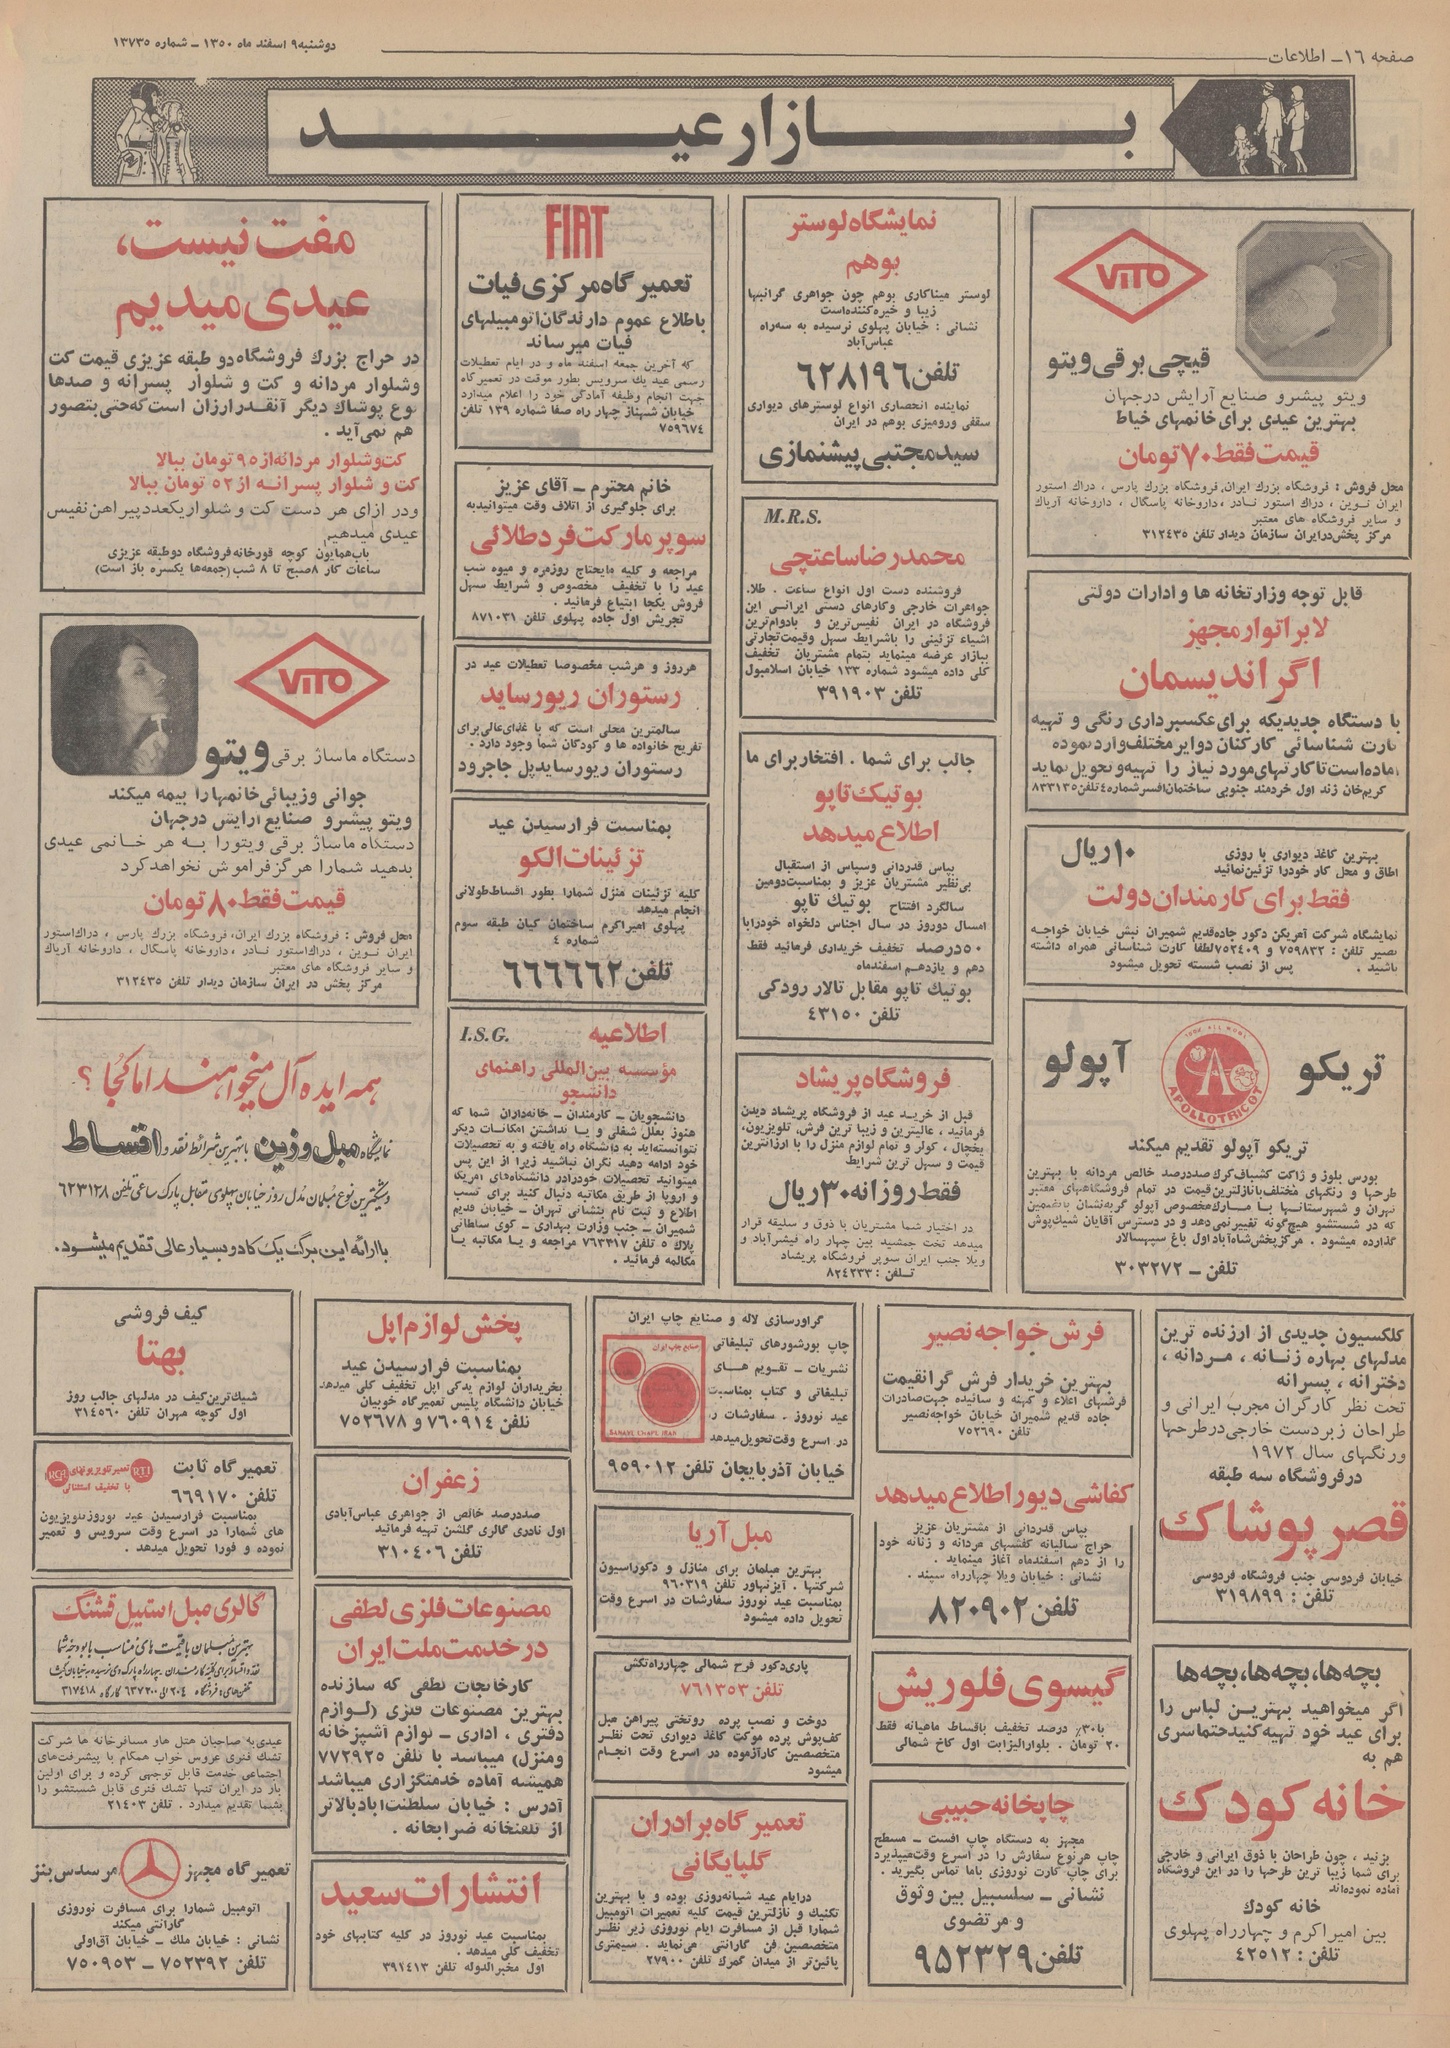 صفحه ١٦ـ اطلاعات
دوشنبه ٩ اسفند ماه ١٣٥٠ ـ شماره ١٣٧٣٥
بازار عید
VITO
قیچی برقی ویتو
ویتو پیشرو صنایع آرایش درجهان
بهترین عیدی برای خانمهای خیاط
قیمت فقط ٧٠ تومان
محل فروش : فروشگاه بزرك ایران، فروشگاه بزرك پارس ، دراك استور
ایران نوین ، دراك استور نادر ، داروخانه پاسگال ، داروخانه آریاك
و سایر فروشگاه های معتبر
مرکز پخش درایران سازمان دیدار تلفن ٣١٢٤٣٥
قابل توجه وزارتخانه ها و ادارات دولتی
لابراتوار مجهز
اگراندیسمان
با دستگاه جدیدیکه برای عکسبرداری رنگی و تهیه
کارت شناسائی کارکنان دوایر مختلف وارد نموده
آماده است تا کارتهای مورد نیاز را تهیه و تحویل نماید
کریم‌خان زند اول خردمند جنوبی ساختمان افسر شماره ٤ تلفن ٨٣٣١٣٥
بهترین کاغذ دیواری با روزی ١٠ ریال
اطاق و محل کار خودرا تزئین نمائید
فقط برای کارمندان دولت
نمایشگاه شرکت آمریکن دکور جاده قدیم شمیران نبش خیابان خواجه
نصیر تلفن : ٧٥٩٨٣٢ و ٧٥٢٤٠٩ لطفا کارت شناسائی همراه داشته
باشید . پس از نصب شسته تحویل میشود
تریکو آپولو
APOLLOTRICOT
تریکو آپولو تقدیم میکند
بورس بلوز و ژاکت کشباف کرك صددرصد خالص مردانه با بهترین
طرحها و رنگهای مختلف با نازلترین قیمت در تمام فروشگاههای معتبر
تهران و شهرستانها با مارك مخصوص آپولو گربه نشان با تضمین
که در شستشو هیچ گونه تغییر نمی دهد و در دسترس آقایان شیك پوش
گذارده میشود . مرکز پخش شاه آباد اول باغ سپهسالار
تلفن ـ ٣٠٣٢٧٢
نمایشگاه لوستر
بوهم
لوستر میناکاری بوهم چون جواهری گرانبها
زیبا و خیره کننده است
نشانی : خیابان پهلوی نرسیده به سه راه
عباس آباد
تلفن ٦٢٨١٩٦
نماینده انحصاری انواع لوسترهای دیواری
سقفی و رومیزی بوهم در ایران
سید مجتبی پیشنمازی
M.R.S.
محمدرضا ساعتچی
فروشنده دست اول انواع ساعت . طلا.
جواهرات خارجی و کارهای دستی ایرانی این
فروشگاه در ایران نفیس‌ترین و بادوام‌ترین
اشیاء تزئینی را باشرایط سهل و قیمت تجارتی
ببازار عرضه مینماید بتمام مشتریان تخفیف
کلی داده میشود شماره ١٣٣ خیابان اسلامبول
تلفن ٣٩١٩٠٣
جالب برای شما . افتخار برای ما
بوتیك تاپو
اطلاع میدهد
بپاس قدردانی وسپاس از استقبال
بی‌نظیر مشتریان عزیز و بمناسبت دومین
سالگرد افتتاح بوتیك تاپو
امسال دوروز در سال اجناس دلخواه خودرابا
٥٠ درصد تخفیف خریداری فرمائید فقط
دهم و یازدهم اسفندماه
بوتیك تاپو مقابل تالار رودکی
تلفن ٤٣١٥٠
فروشگاه پریشاد
قبل از خرید عید از فروشگاه پریشاد دیدن
فرمائید ، عالیترین و زیبا ترین فرش، تلویزیون،
یخچال ، کولر و تمام لوازم منزل را با ارزانترین
قیمت و سهل ترین شرایط
فقط روزانه ٣٠ ریال
در اختیار شما مشتریان با ذوق و سلیقه قرار
میدهد تخت جمشید بین چهار راه فیشرآباد و
ویلا جنب ایران سوپر فروشگاه پریشاد
تلفن : ٨٢٤٢٣٣
FIAT
تعمیر گاه مرکزی فیات
باطلاع عموم دارندگان اتومبیلهای
فیات میرساند
که آخرین جمعه اسفند ماه و در ایام تعطیلات
رسمی عید یك سرویس بطور موقت در تعمیر گاه
جهت انجام وظیفه آمادگی خود را اعلام میدارد
خیابان شهناز چهار راه صفا شماره ١٣٩ تلفن
٧٥٩٦٧٤
خانم محترم ـ آقای عزیز
برای جلوگیری از اتلاف وقت میتوانید به
سوپر مارکت فرد طلائی
مراجعه و کلیه مایحتاج روزمره و میوه شب
عید را با تخفیف مخصوص و شرایط سهل
فروش یکجا ابتیاع فرمائید .
تجریش اول جاده پهلوی تلفن ٨٧١٠٣١
هرروز و هرشب مخصوصا تعطیلات عید در
رستوران ریورساید
سالمترین محلی است که با غذای عالی برای
تفریح خانواده ها و کودکان شما وجود دارد .
رستوران ریورساید پل جاجرود
بمناسبت فرارسیدن عید
تزئینات الکو
کلیه تزئینات منزل شمارا بطور اقساط طولانی
انجام میدهد
پهلوی امیراکرم ساختمان کیان طبقه سوم
شماره ٤
تلفن ٦٦٦٦٦٢
I.S.G. اطلاعیه
مؤسسه بین‌المللی راهنمای
دانشجو
دانشجویان ـ کارمندان ـ خانه‌داران شما که
هنوز بعلل شغلی و یا نداشتن امکانات دیگر
نتوانسته‌اید به دانشگاه راه یافته و به تحصیلات
خود ادامه دهید نگران نباشید زیرا از این پس
میتوانید تحصیلات خودرادر دانشگاه‌های امریکا
و اروپا از طریق مکاتبه دنبال کنید برای کسب
اطلاع و ثبت نام بنشانی تهران ـ خیابان قدیم
شمیران ـ جنب وزارت بهداری ـ کوی سلطانی
پلاك ٥ تلفن ٧٦٣٣١٧ مراجعه و یا مکاتبه یا
مکالمه فرمائید .
مفت نیست،
عیدی میدیم
در حراج بزرك فروشگاه دو طبقه عزیزی قیمت کت
وشلوار مردانه و کت و شلوار پسرانه و صدها
نوع پوشاك دیگر آنقدر ارزان است که حتی بتصور
هم نمی‌آید .
کت وشلوار مردانه از ٩٥ تومان ببالا
کت و شلوار پسرانه از ٥٢ تومان ببالا
ودر ازای هر دست کت و شلوار یکعدد پیراهن نفیس
عیدی میدهیم
باب همایون کوچه قورخانه فروشگاه دوطبقه عزیزی
ساعات کار ٨ صبح تا ٨ شب (جمعه‌ها یکسره باز است)
VITO
دستگاه ماساژ برقی ویتو
جوانی و زیبائی خانمها را بیمه میکند
ویتو پیشرو صنایع آرایش درجهان
دستگاه ماساژ برقی ویتورا به هر خانمی عیدی
بدهید شمارا هرگز فراموش نخواهد کرد
قیمت فقط ٨٠ تومان
محل فروش : فروشگاه بزرك ایران، فروشگاه بزرك پارس ، دراك استور
ایران نوین ، دراك استور نادر ، داروخانه پاسگال ، داروخانه آریاك
و سایر فروشگاه های معتبر
مرکز پخش در ایران سازمان دیدار تلفن ٣١٢٤٣٥
همه ایده آل میخواهند اما کجا ؟
نمایشگاه مبل وزین با بهترین شرائط نقد و اقساط
و شیکترین نوع مبلمان مدل روز خیابان پهلوی مقابل پارك ساعی تلفن ٦٢٣١٢٨
با ارائه این برگ یك کادو بسیار عالی تقدیم میشود.
کلکسیون جدیدی از ارزنده ترین
مدلهای بهاره زنانه ، مردانه ،
دخترانه ، پسرانه
تحت نظر کارگران مجرب ایرانی و
طراحان زبردست خارجی درطرحها
ورنگهای سال ١٩٧٢
درفروشگاه سه طبقه
قصر پوشاك
خیابان فردوسی جنب فروشگاه فردوسی
تلفن : ٣١٩٨٩٩
بچه‌ها، بچه‌ها، بچه‌ها
اگر میخواهید بهترین لباس را
برای عید خود تهیه کنید حتما سری
هم به
خانه کودك
بزنید ، چون طراحان با ذوق ایرانی و خارجی
برای شما زیبا ترین طرحها را در این فروشگاه
آماده نموده‌اند
خانه کودك
بین امیر اکرم و چهارراه پهلوی
تلفن : ٤٢٥١٢
فرش خواجه نصیر
بهترین خریدار فرش گرانقیمت
فرشهای اعلاء و کهنه و سائیده جهت صادرات
جاده قدیم شمیران خیابان خواجه نصیر
تلفن ٧٥٣٦٩٠
کفاشی دیور اطلاع میدهد
بپاس قدردانی از مشتریان عزیز
حراج سالیانه کفشهای مردانه و زنانه خود
را از دهم اسفندماه آغاز مینماید .
نشانی : خیابان ویلا چهارراه سپند .
تلفن ٨٢٠٩٠٢
گیسوی فلوریش
با ٣٠٪ درصد تخفیف باقساط ماهیانه فقط
٢٠ تومان . بلوارالیزابت اول کاخ شمالی
چاپخانه حبیبی
مجهز به دستگاه چاپ افست ـ مسطح
چاپ هرنوع سفارش را در اسرع وقت میپذیرد
برای چاپ کارت نوروزی باما تماس بگیرید .
نشانی ـ سلسبیل بین وثوق
و مرتضوی
تلفن ٩٥٢٣٢٩
گراورسازی لاله و صنایع چاپ ایران
چاپ بورشورهای تبلیغاتی
نشریات ـ تقویم های
تبلیغاتی و کتاب بمناسبت
عید نوروز . سفارشات را
در اسرع وقت تحویل میدهد
صنایع چاپ ایران
SANAYE CHAPE IRAN
خیابان آذربایجان تلفن ٩٥٩٠١٢
مبل آریا
بهترین مبلمان برای منازل و دکوراسیون
شرکتها . آیزنهاور تلفن ٩٦٠٣١٩
بمناسبت عید نوروز سفارشات در اسرع وقت
تحویل داده میشود
پاری‌دکور فرح شمالی چهارراه تکش
تلفن ٧٦١٣٥٣
دوخت و نصب پرده روتختی پیراهن مبل
کف‌پوش پرده موکت کاغذ دیواری تحت نظر
متخصصین کارآزموده در اسرع وقت انجام
میشود
تعمیر گاه برادران
گلپایگانی
درایام عید شبانه‌روزی بوده و با بهترین
تکنیك و نازلترین قیمت کلیه تعمیرات اتومبیل
شمارا قبل از مسافرت ایام نوروزی زیر نظر
متخصصین فن گارانتی می‌نماید . سیمتری
پائین‌تر از میدان گمرك تلفن ٢٧٩٠٠
پخش لوازم اپل
بمناسبت فرارسیدن عید
بخریداران لوازم یدکی اپل تخفیف کلی میدهد
خیابان دانشگاه پلیس تعمیرگاه خوبیان
تلفن ٧٦٠٩١٤ و ٧٥٣٦٧٨
زعفران
صددرصد خالص از جواهری عباس‌آبادی
اول نادری گالری گلشن تهیه فرمائید
تلفن ٣١٠٤٠٦
مصنوعات فلزی لطفی
در خدمت ملت ایران
کارخانجات لطفی که سازنده
بهترین مصنوعات فلزی (لوازم
دفتری ، اداری ـ لوازم آشپزخانه
ومنزل) میباسد با تلفن ٧٧٢٩٢٥
همیشه آماده خدمتگزاری میباشد
آدرس : خیابان سلطنت‌اباد بالاتر
از تلفنخانه ضرابخانه .
انتشارات سعید
بمناسبت عید نوروز در کلیه کتابهای خود
تخفیف کلی میدهد .
اول مخبرالدوله تلفن ٣٩١٤١٣
کیف فروشی
بهتا
شیك‌ترین کیف در مدلهای جالب روز
اول کوچه مهران تلفن ٣١٤٥٦٠
تعمیر گاه ثابت
RTI تعمیر تلویزیونهای RCA
با تخفیف استثنائی
تلفن ٦٦٩١٧٠
بمناسبت فرارسیدن عید نوروز تلویزیون
های شمارا در اسرع وقت سرویس و تعمیر
نموده و فورا تحویل میدهد .
گالری مبل استیل قشنگ
بهترین مبلمان با قیمت های مناسب با بودجه شما
تلفن‌های : فروشگاه ٢٠٤ الی ٦٣٧٢٠٠ کارگاه ٣١٧٤١٨
عیدی به صاحبان هتل هاو مسافرخانه ها شرکت
تشك فنری عروس خواب همگام با پیشرفت‌های
اجتماعی خدمت قابل توجهی کرده و برای اولین
بار در ایران تنها تشك فنری قابل شستشو را
بشما تقدیم میدارد . تلفن ٢١٤٠٣
تعمیر گاه مجهز مرسدس بنز
اتومبیل شمارا برای مسافرت نوروزی
گارانتی میکند
نشانی : خیابان ملك ـ خیابان آق‌اولی
تلفن ٧٥٢٣٩٢ ـ ٧٥٠٩٥٣